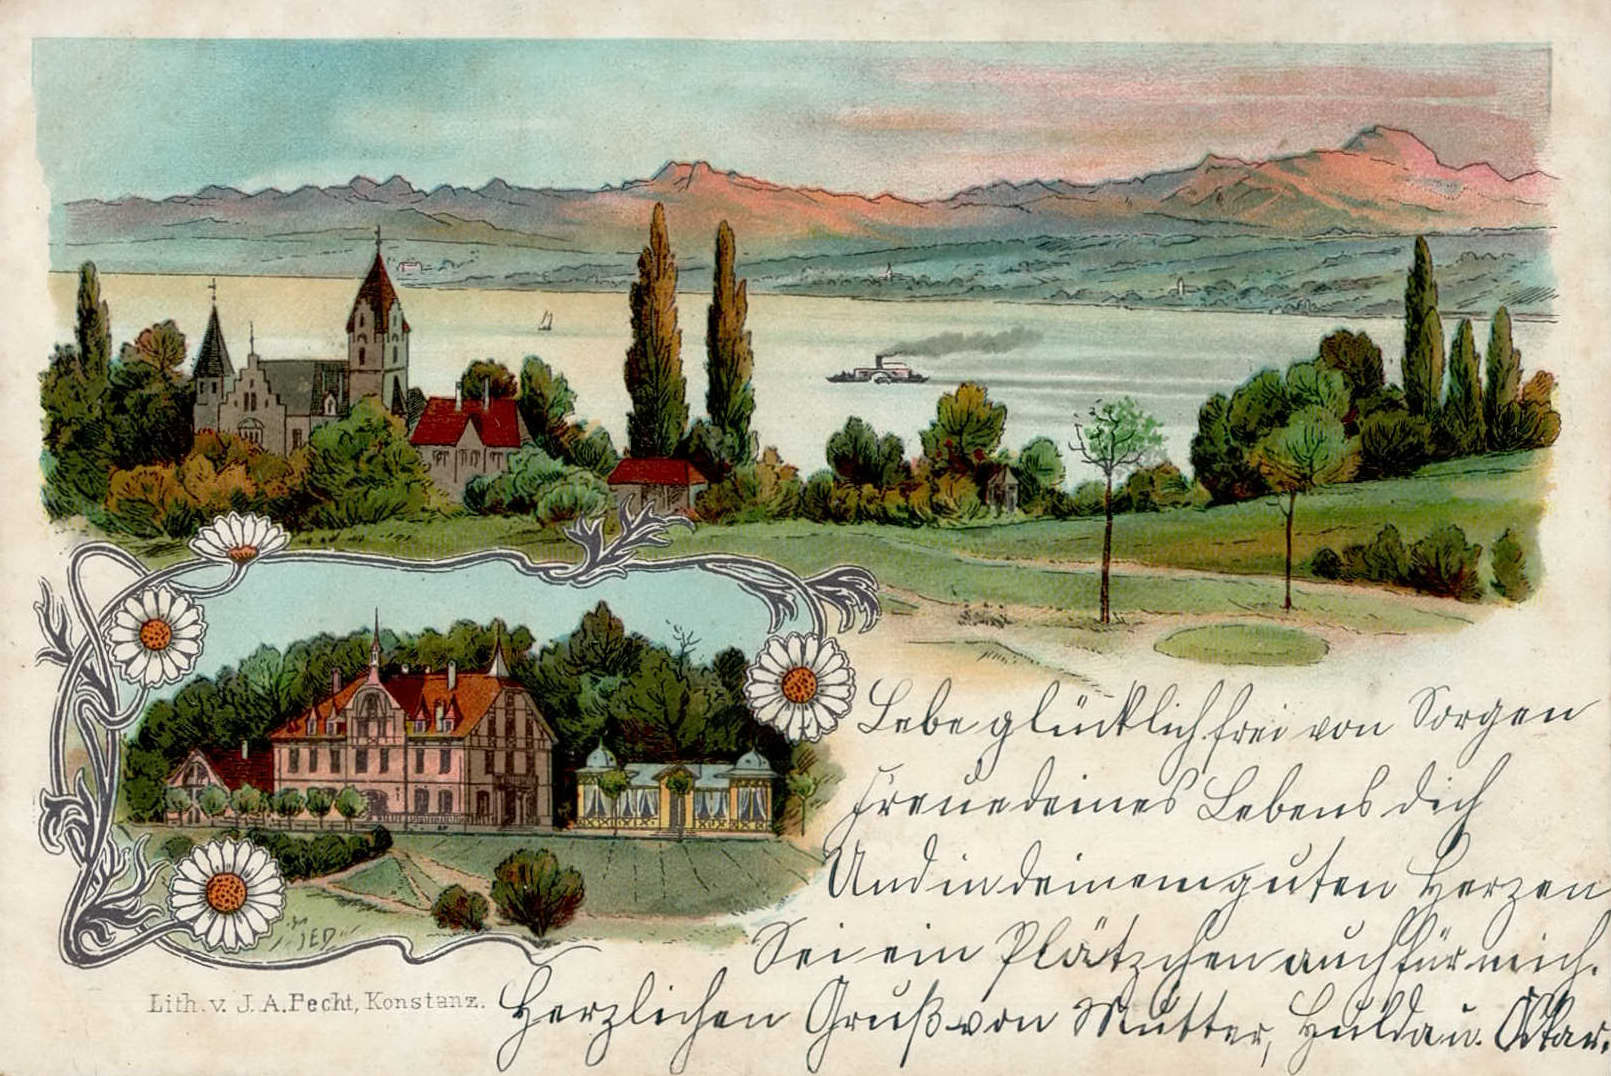 Lebe glücklich frei von Sorgen
Freue deines Lebens dich
Und in deinem guten Herzen
Sei ein Plätzchen auch für mich.
Herzlichen Gruß von Mutter, Hulda u. Oskar.
JED
Lith. v. J. A. Pecht, Konstanz.